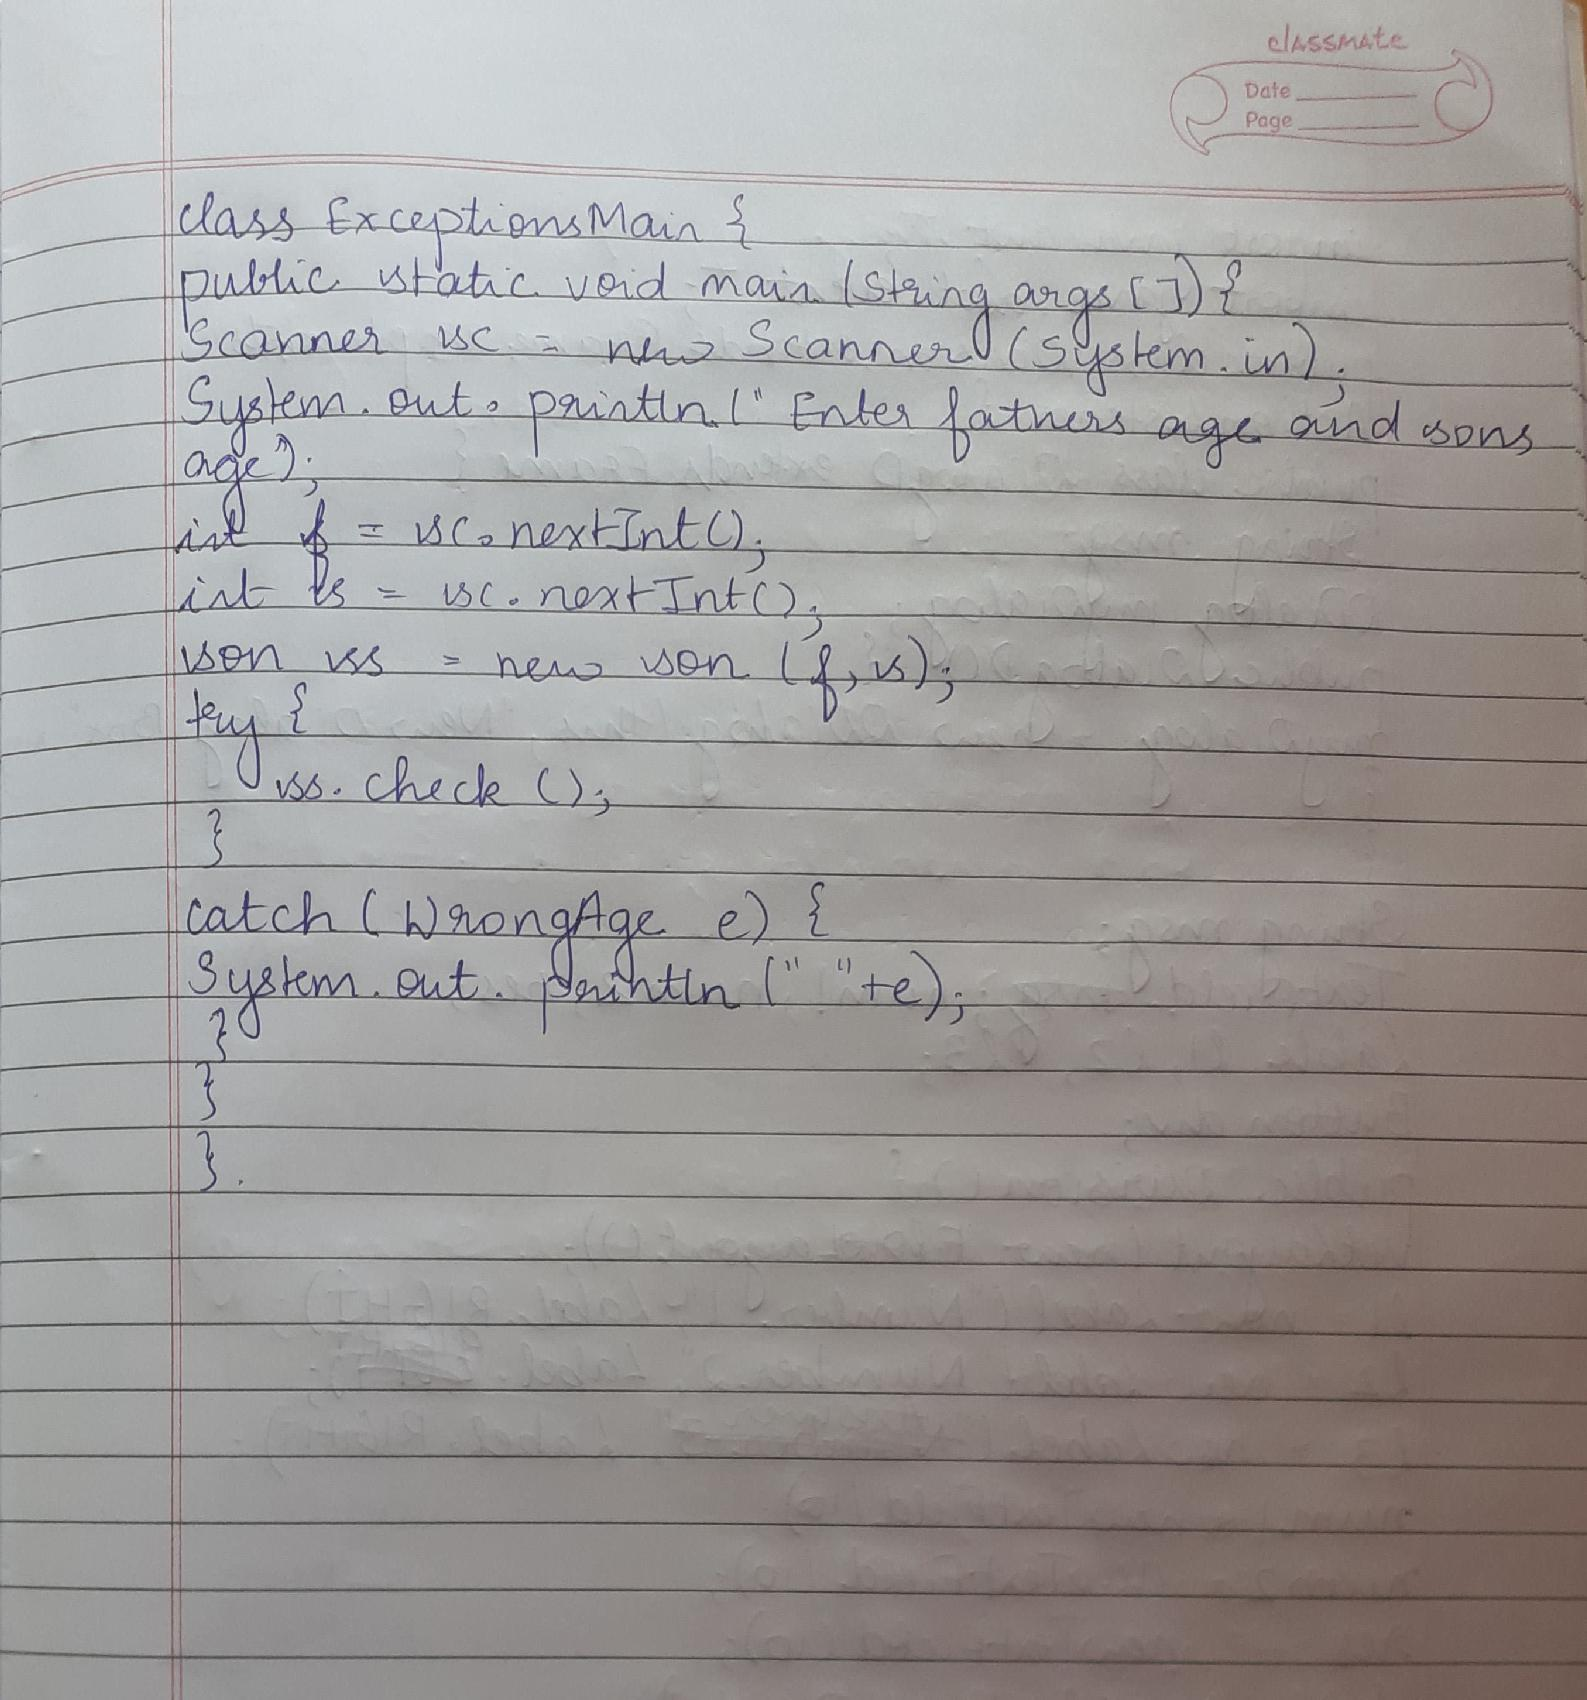 classmate
Date
Page
class ExceptionsMain {
public static void main (String args []) {
Scanner sc = new Scanner (System.in);
System.out.println (" Enter fathers age and sons
age");
int f = sc.nextInt();
int s = sc.nextInt();
son ss = new son (f, s);
try {
ss.check ();
}
catch (WrongAge e) {
System.out.println (" "+e);
}
}
}.